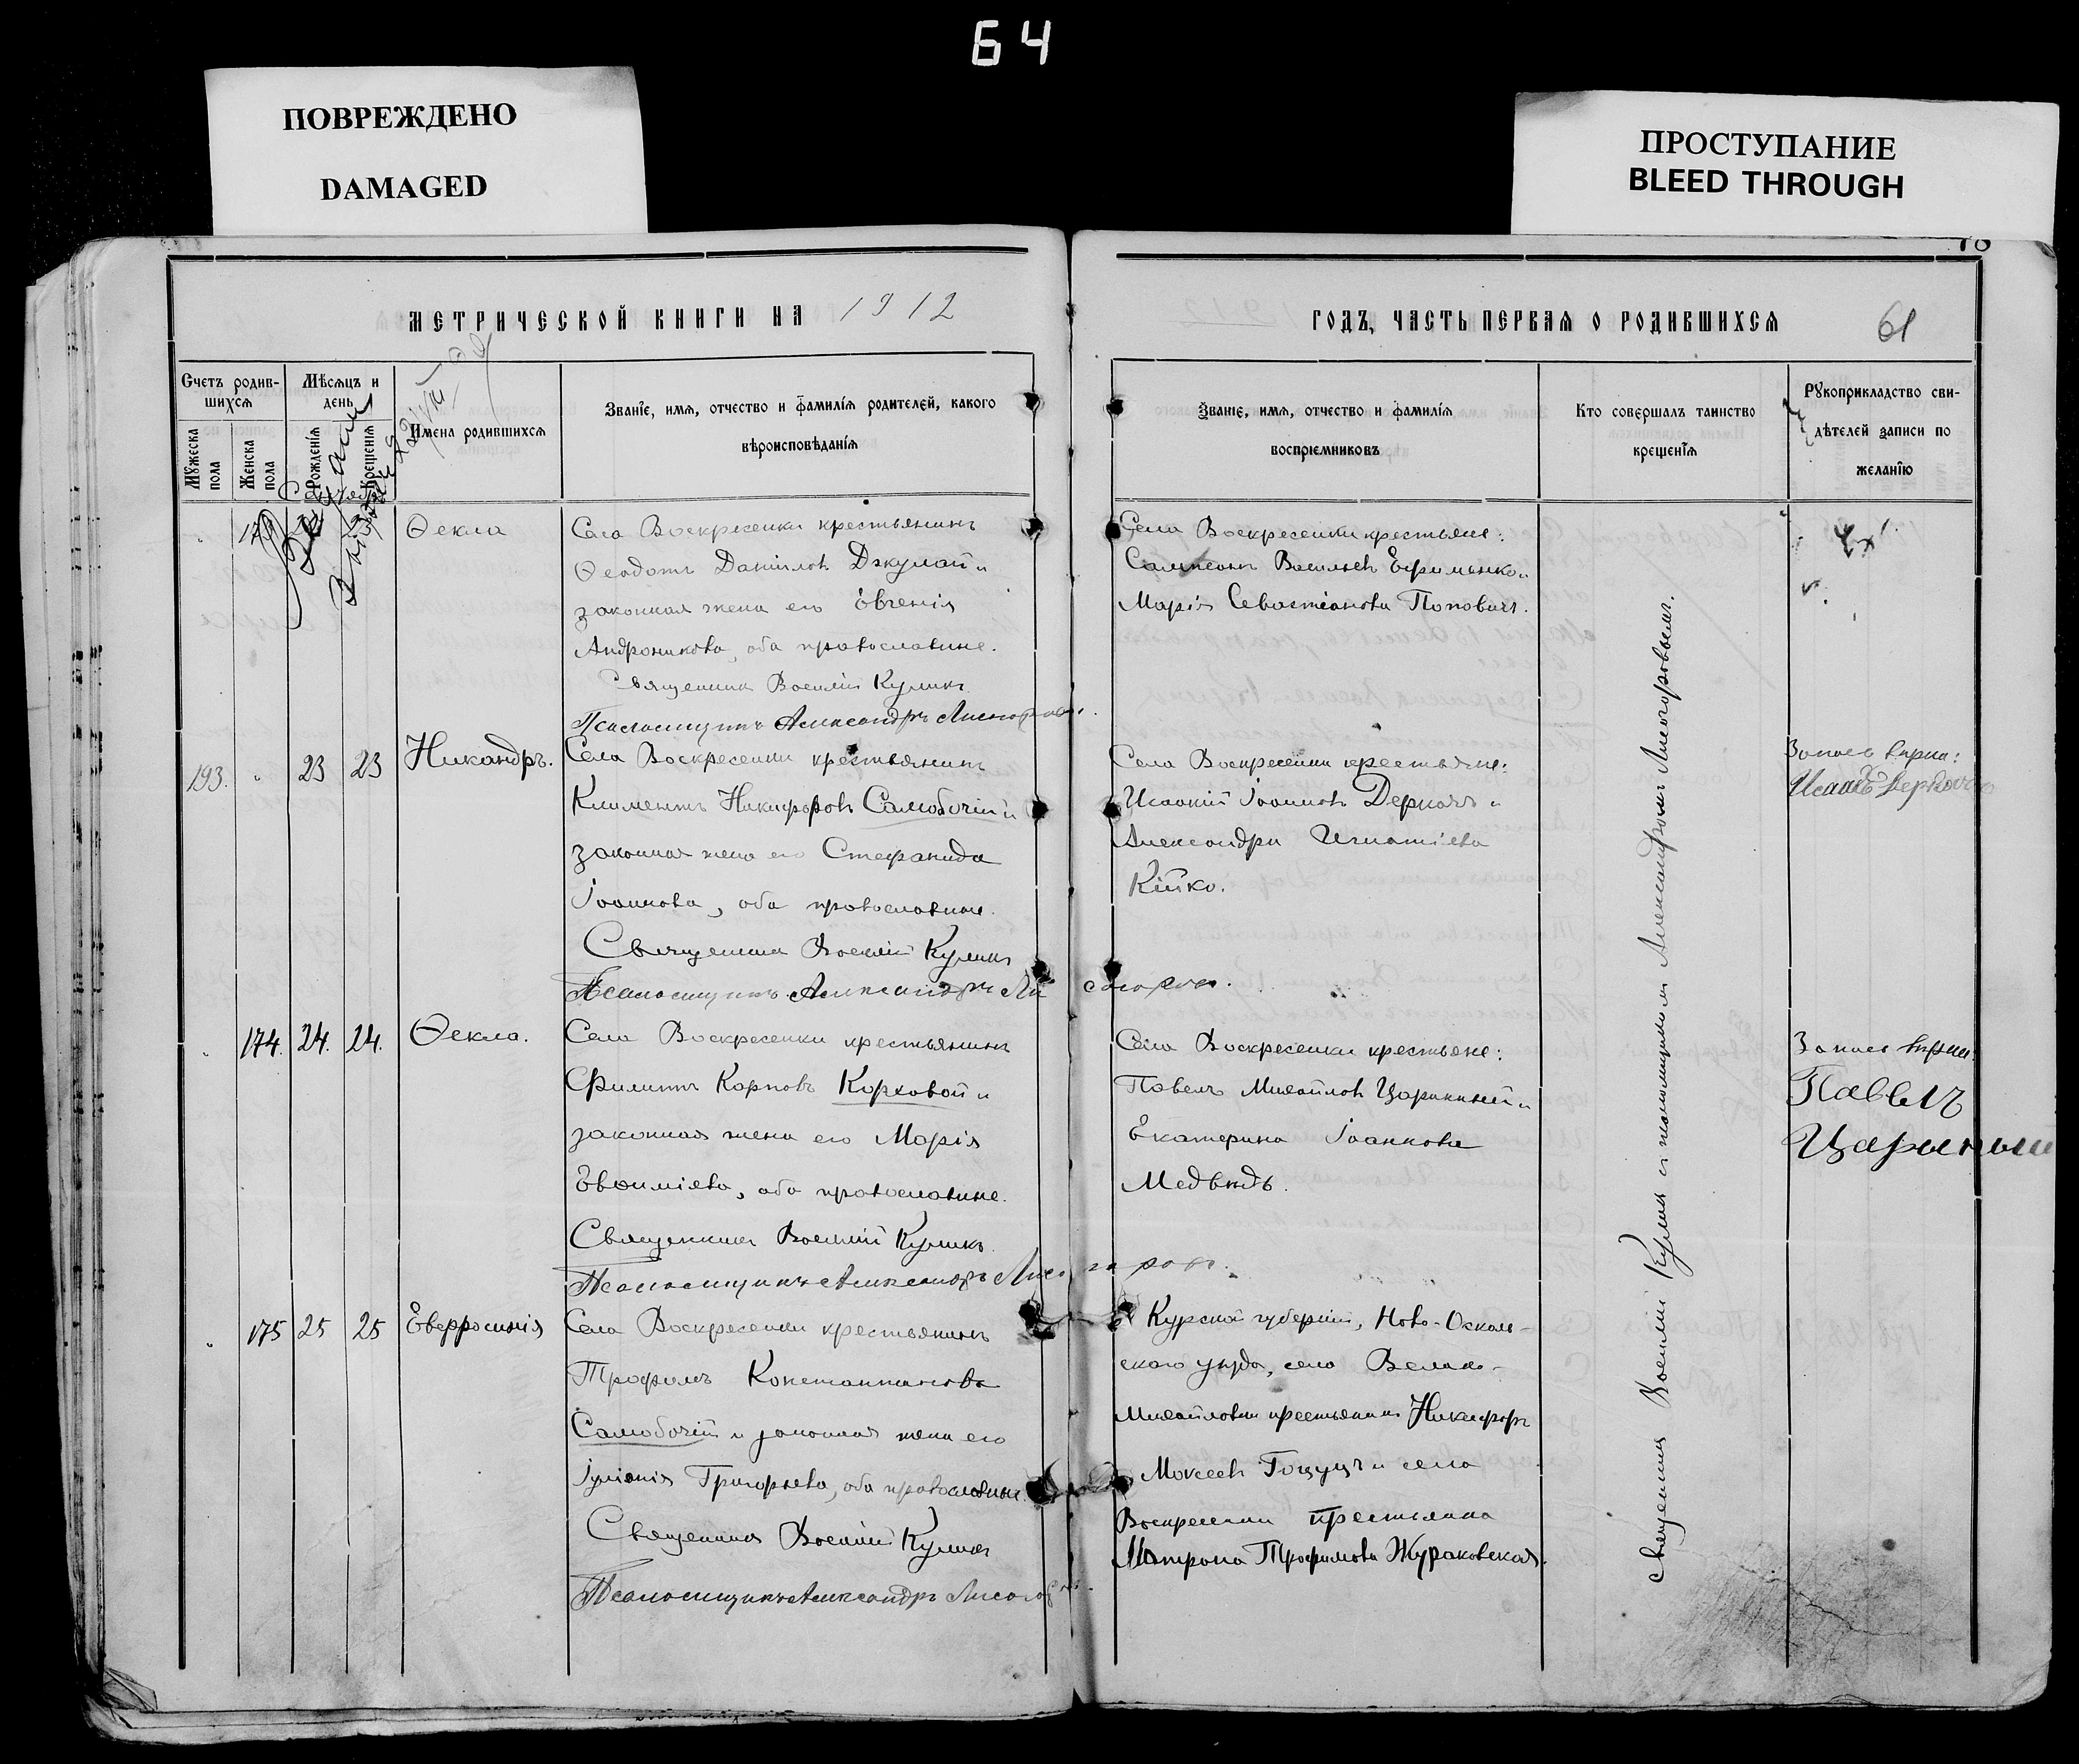 64
ПОВРЕЖДЕНО
DAMAGED
ПРОСТУПАНИЕ
BLEED THROUGH
МЕТРИЧЕСКОЙ КНИГИ НА 1912
Счетъ родив-
шихся
Мѣсяцъ и
день
Мужеска
пола
Женска
пола
Рожденія
Крещенія
Имена родившихся
Званіе, имя, отчество и фамилія родителей, какого
вѣроисповѣданія
Ѳекла
Села Воскресенки крестьянинъ
Ѳеодотъ Даніиловъ Джулай и
законная жена его Евгенія
Андроникова, оба православные.
Священникъ Василій Куликъ
Псаломщикъ Александръ Лисогоровъ.
193. " 23 23 Никандръ.
Села Воскресенки крестьянинъ
Климентъ Никифоровъ Самобочій и
законная жена его Стефанида
Іоаннова, оба православные.
Священникъ Василій Куликъ
Псаломщикъ Александръ Лисогоровъ.
" 174. 24. 24. Ѳекла.
Села Воскресенки крестьянинъ
Филиппъ Карповъ Корховой и
законная жена его Марія
Евѳиміева, оба православные.
Священникъ Василій Куликъ.
Псаломщикъ Александръ Лисогоровъ.
" 175 25 25 Евфросинія
Села Воскресенки крестьянинъ
Трофимъ Константиновъ
Самобочій и законная жена его
Іуліанія Григорьева, оба православные.
Священникъ Василій Куликъ
Псаломщикъ Александръ
ГОДЪ, ЧАСТЬ ПЕРВАЯ О РОДИВШИХСЯ
61
Званіе, имя, отчество и фамилія
воспріемниковъ
Кто совершалъ таинство
крещенія
Рукоприкладство сви-
дѣтелей записи по
желанію
Села Воскресенки крестьяне:
Сампсонъ Васильевъ Ефименко и
Марія Севастіанова Поповичъ.
Села Воскресенки крестьяне:
Исаакій Іоанновъ Деркачъ и
Александра Игнатіева
Кійко.
Села Воскресенки крестьяне:
Павелъ Михайловъ Царинный и
Екатерина Іоаннова
Медвѣдь.
Курской губерніи, Ново-Осколь-
скаго уѣзда, села Велико-
Михайловки крестьянинъ Никифоръ
Моисеевъ и села
Воскресенки крестьянка
Матрона Трофимова Жураковская.
Священникъ Василій Куликъ съ псаломщикомъ Александромъ Лисогоровымъ.
Запись вѣрна:
Исаакъ Деркачъ
Запись вѣрна:
Павелъ
Царыный